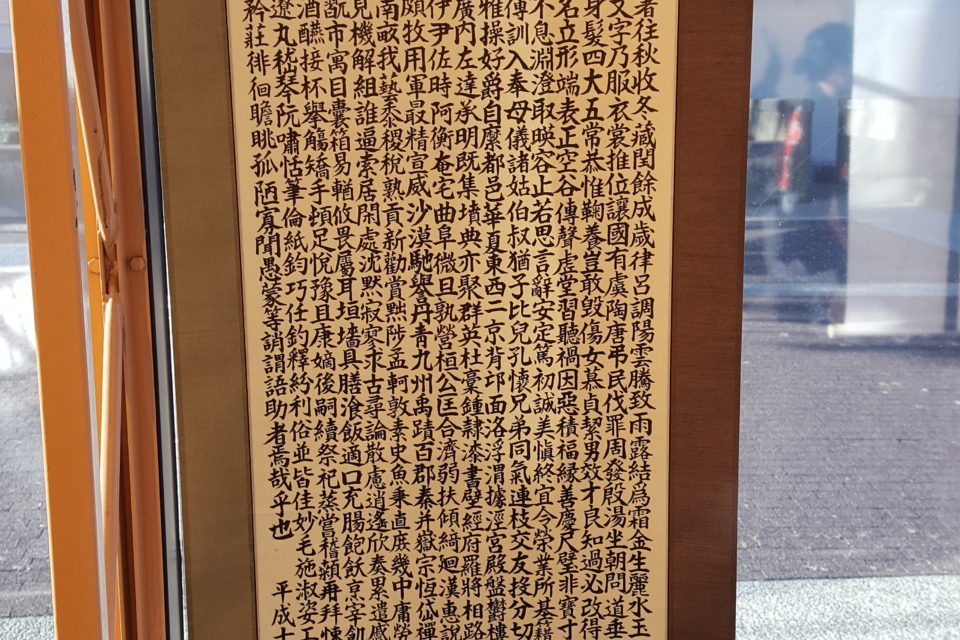 暑往秋收冬藏閏餘成歲律呂調陽雲騰致雨露結爲霜金生麗水玉
文字乃服衣裳推位讓國有虞陶唐弔民伐罪周發殷湯坐朝問道垂
身髮四大五常恭惟鞠養豈敢毀傷女慕貞潔男效才良知過必改得
名立形端表正空谷傳聲虛堂習聽禍因惡積福緣善慶尺璧非寶寸
不息淵澄取映容止若思言辭安定篤初誠美慎終宜令榮業所基籍
傅訓入奉母儀諸姑伯叔猶子比兒孔懷兄弟同氣連枝交友投分切
雅操好爵自縻都邑華夏東西二京背邙面洛浮渭據涇宮殿盤鬱樓
廣内左達承明既集墳典亦聚群英杜稾鍾隷漆書壁經府羅將相路
伊尹佐時阿衡奄宅曲阜微旦孰營桓公匡合濟弱扶傾綺迴漢惠說
頗牧用軍最精宣威沙漠馳譽丹青九州禹蹟百郡秦并嶽宗恒岱禪
南畝我藝黍稷稅熟貢新勸賞黜陟孟軻敦素史魚秉直庶幾中庸勞
見機解組誰逼索居閑處沈默寂寥求古尋論散慮逍遙欣奏累遣慼
翫市寓目囊箱易輶攸畏屬耳垣墻具膳飡飯適口充腸飽飫烹宰飢
酒讌接杯舉觴矯手頓足悅豫且康嫡後嗣續祭祀蒸嘗稽顙再拜悚
遼丸嵇琴阮嘯恬筆倫紙鈞巧任釣釋紛利俗並皆佳妙毛施淑姿工
矜莊徘徊瞻眺孤陋寡聞愚蒙等誚謂語助者焉哉乎也
平成十